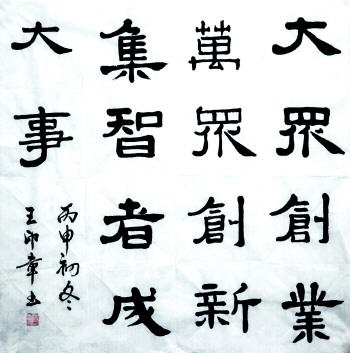 大眾創業
萬眾創新
集智者成
大事
丙申初冬
王印章书